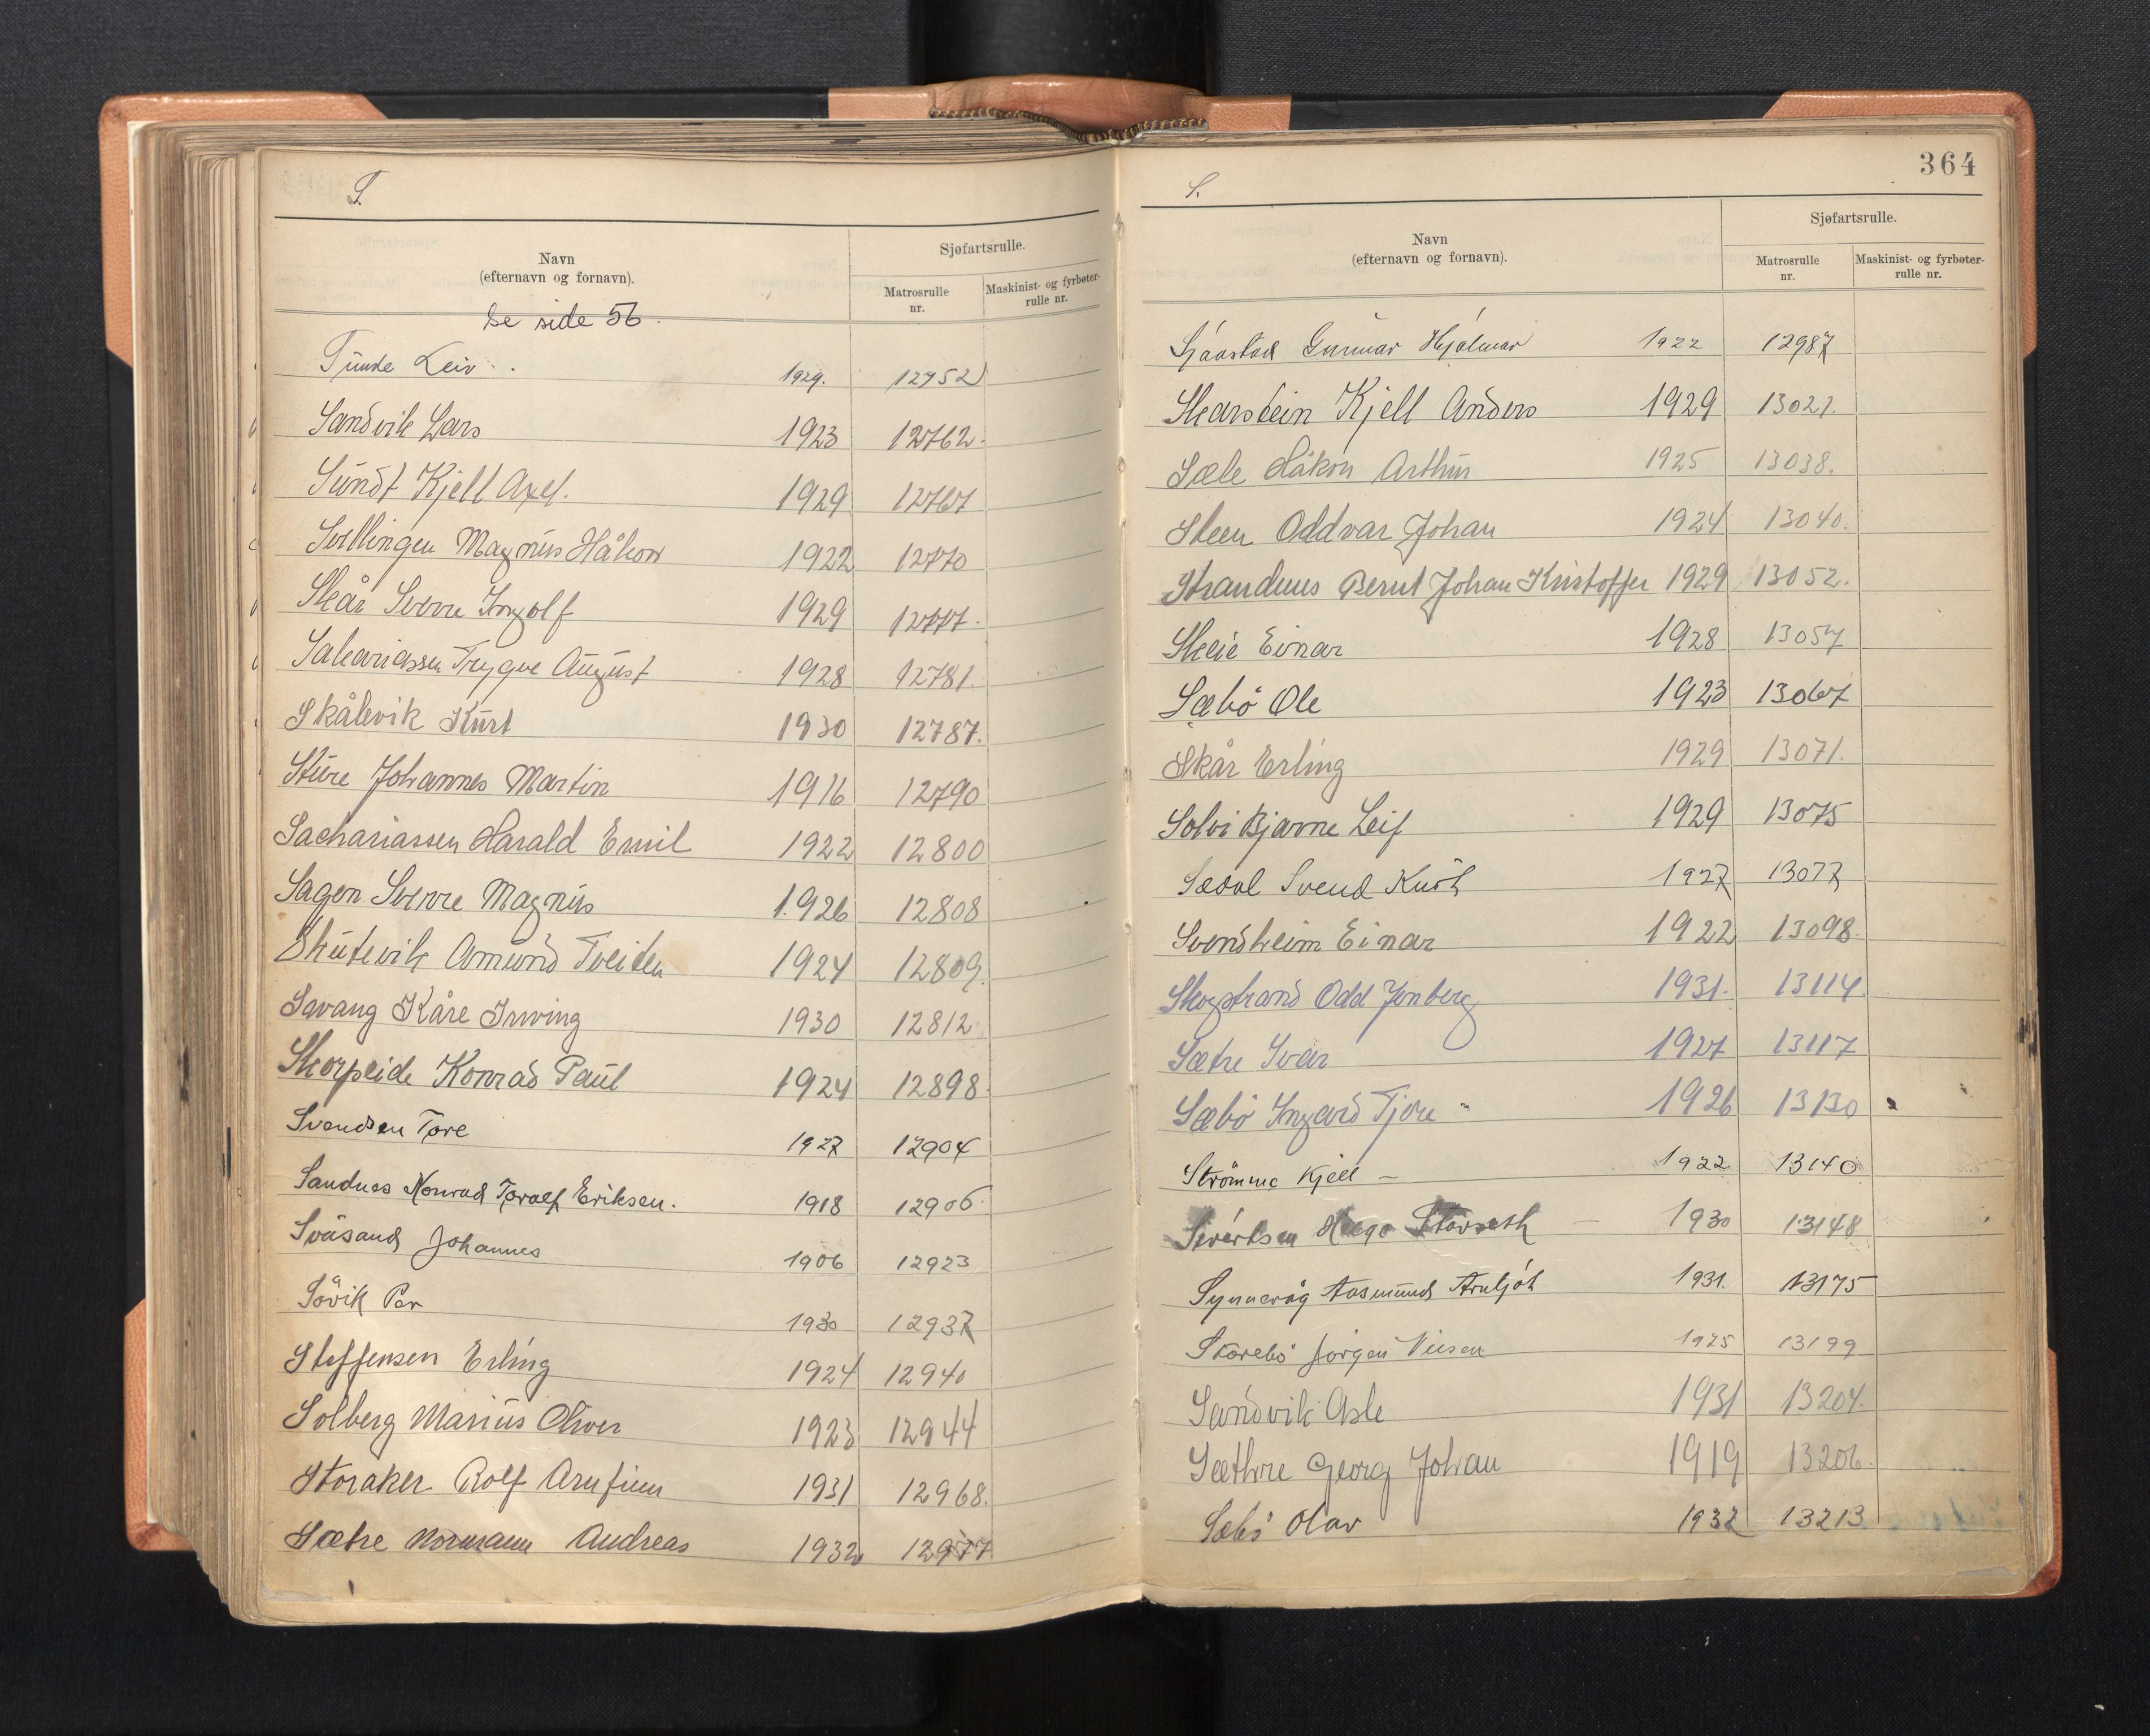 S.
Navn
(efternavn og fornavn).
Sjøfartsrulle.
Matrosrulle
nr.
Maskinist- og fyrbøter-
rulle nr.
Se side 56.
Leiv 1929. 12752
Sandvik Lars 1923 12762.
Sundt Kjell Axel. 1929 12767
Magnus Håkon 1922 12770
Skår Sverre Ingolf 1929 12777.
Sakariassen Trygve August 1928 12781.
Skålevik Kurt 1930 12787.
Sture Johannes Martin 1916 12790
Sachariassen Harald Emil 1922 12800
Sagen Sverre Magnus 1926 12808
Skutevik Amund Tveiten 1924 12809.
Savang Kåre Irwing 1930 12812
Skorpeide Konrad Paul 1924 12898.
Svendsen Tore 1927 12904
Sandnes Konrad Toralf Eriksen. 1918 12906.
Svåsand Johannes 1906 12923
Såvik Per 1930 12937
Steffensen Erling 1924 12940
Solberg Marius Oliver 1923 12944
Storaker Rolf Arnfinn 1931 12968.
Sætre Normann Andreas 1932 12977
364
S.
Navn
(efternavn og fornavn).
Sjøfartsrulle.
Matrosrulle
nr.
Maskinist- og fyrbøter-
rulle nr.
Gunnar Hjalmar 1922 12987
Skarstein Kjell Anders 1929 13021.
Sæle Håkon Arthur 1925 13038.
Steen Oddvar Johan 1924 13040.
Strandenes Bernt Johan Kristoffer 1929 13052.
Skeie Einar 1928 13057
Sæbö Ole 1923 13067
Skår Erling 1929 13071.
Solvi Bjarne Leif 1929 13075
Svend 1927 13077
Svendheim Einar 1922 13098.
Skogstrand Odd Jenberg 1931. 13114.
Sætre Ivar 1927 13117
Sæbö Ingard Tjore 1926 13130
Strömme Kjell — 1922 13140
Sivertsen Hugo — 1930 13148
Synnevåg Aasmund Arnljot 1931. 13175
Storebö Jörgen 1925 13199
Sandvik Asle 1931 13204.
Sæthre Georg Johan 1919 13206.
Sæbö Olav 1932 13213